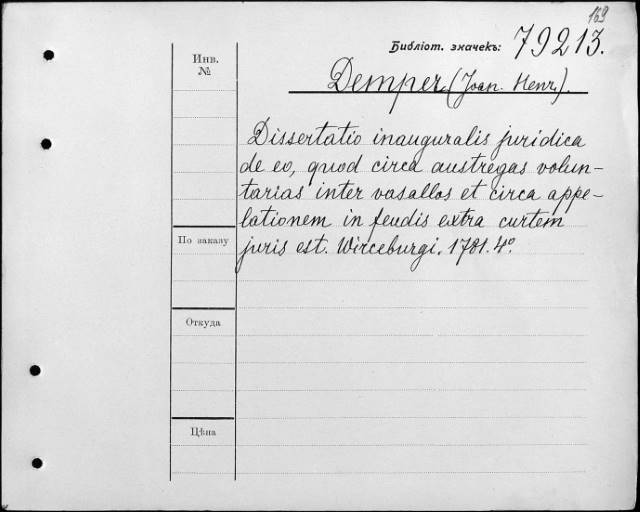 169
Библіот. значекъ: 79213.
Инв.
№
Demper (Joan. Henr.).
Dissertatio inauguralis juridica
de eo, quod circa austregas volun-
tarias inter vasallos et circa appe-
lationem in feudis extra curtem
juris est. Wirceburgi. 1781. 4°.
По заказу
Откуда
Цѣна